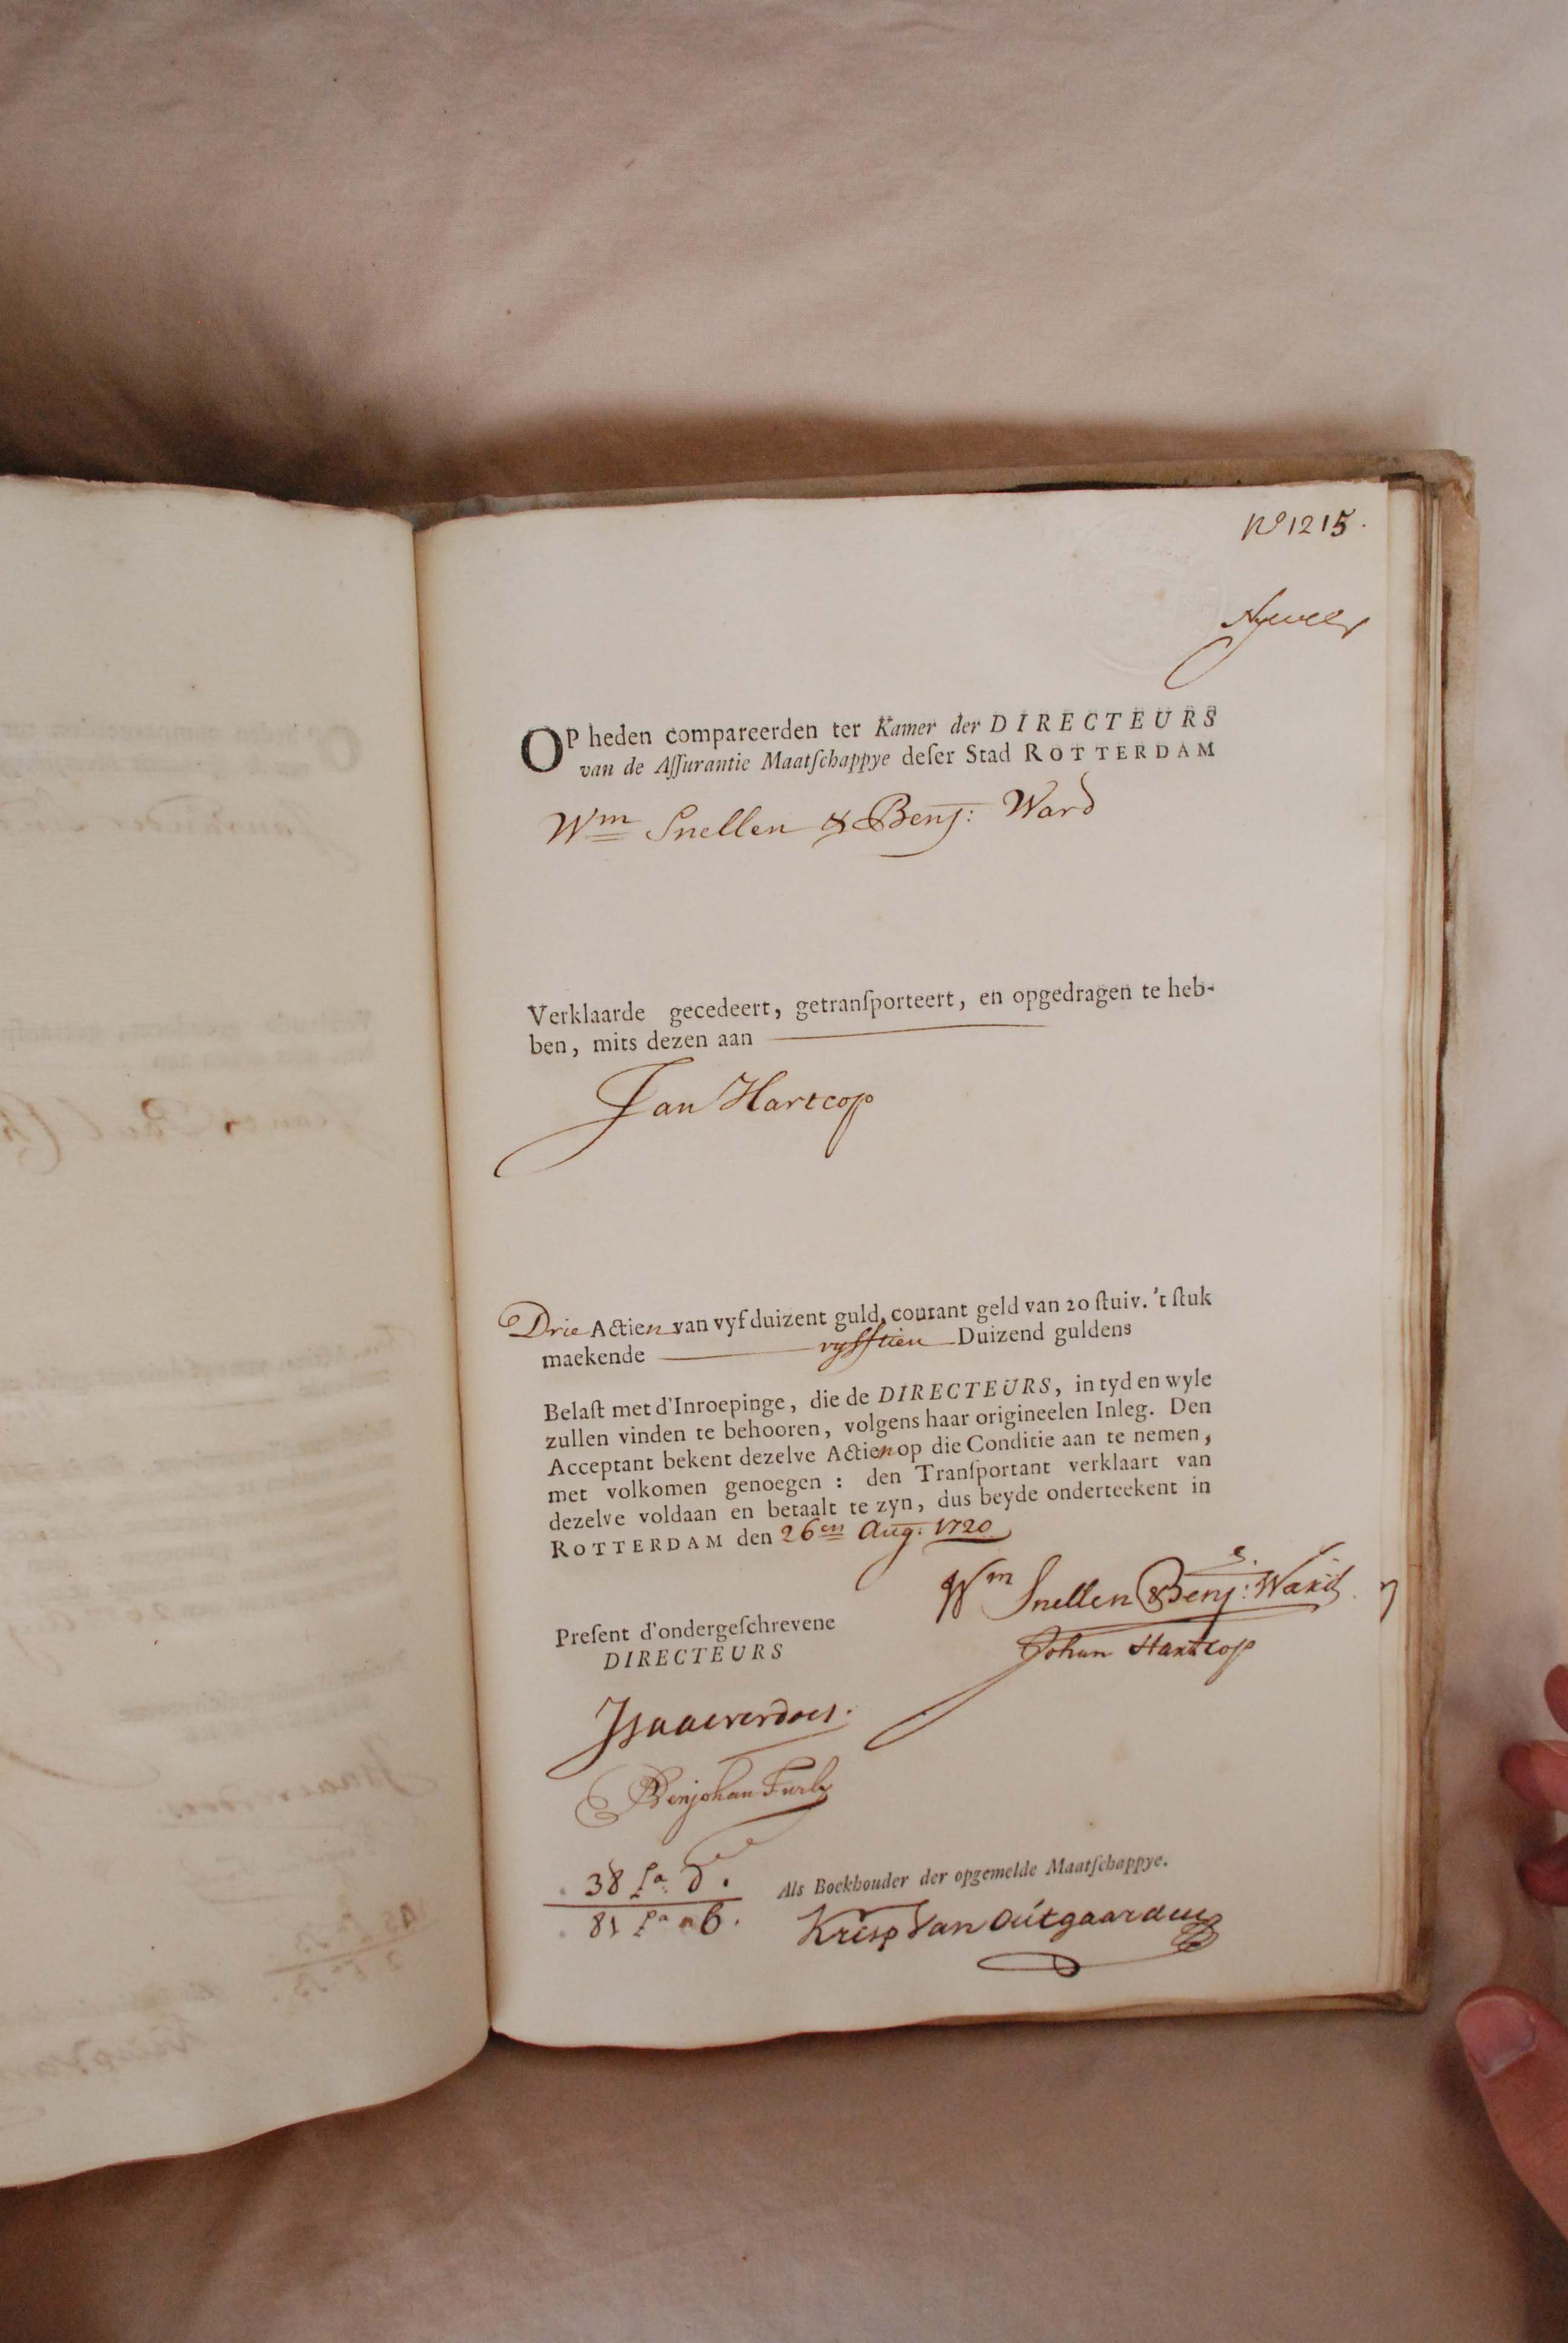 No 1215.
OP heden compareerden ter Kamer der DIRECTEURS
van de Aſſurantie Maatſchappye deſer Stad ROTTERDAM
Wm Snellen & Benj: Ward
Verklaarde gecedeert, getranſporteert, en opgedragen te heb-
ben, mits dezen aan
Jan Hartcop
Drie Actien van vyf duizent guld, courant geld van 20 ſtuiv. 't ſtuk
maekende vyfftien Duizend guldens
Belaſt met d'Inroepinge, die de DIRECTEURS, in tyd en wyle
zullen vinden te behooren, volgens haar origineelen Inleg. Den
Acceptant bekent dezelve Actien op die Conditie aan te nemen,
met volkomen genoegen : den Tranſportant verklaart van
dezelve voldaan en betaalt te zyn, dus beyde onderteekent in
ROTTERDAM den 26en Aug: 1720
Wm Snellen & Benj: Ward
Preſent d'ondergeſchrevene
DIRECTEURS
Johan Hartcop
Isaacverdoes.
Benjohan Furly
38
81
Als Boekhouder der opgemelde Maatſchappye.
Krisp Van Outgaarden